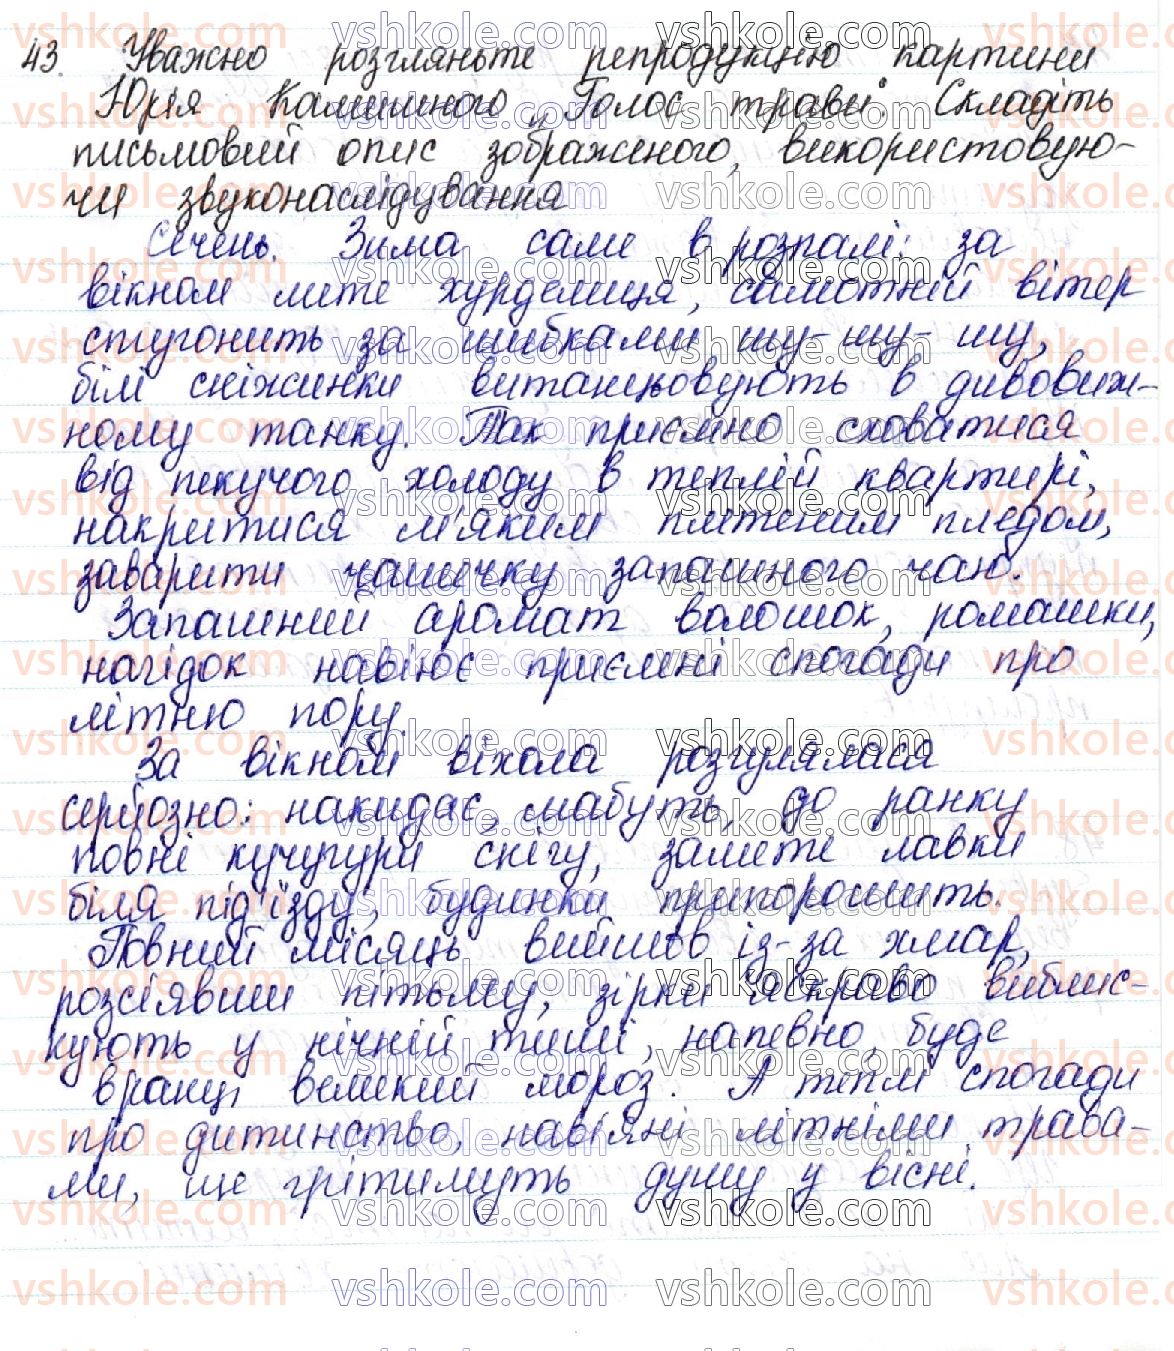 43. Уважно розгляньте репродукцію картини
Юрія Камишного „Голос трави". Складіть
письмовий опис зображеного, використовую-
чи звуконаслідування
Січень. Зима саме в розпалі: за
вікном мете хурделиця, самотній вітер
стугонить за шибками шу-шу-шу,
білі сніжинки витанцьовують в дивовиж-
ному танку. Так приємно сховатися
від пекучого холоду в теплій квартирі,
накритися м'яким плетеним пледом,
заварити чашичку запашного чаю.
Запашний аромат волошок, ромашки,
нагідок навіює приємні спогади про
літню пору.
За вікном віхола розгулялася
серйозно: накидає, мабуть, до ранку
повні кучугури снігу, замете лавки
біля під'їзду, будинки припорошить.
Повний місяць вийшов із-за хмар,
розсіявши пітьму, зірки яскраво виблис-
кують у нічній тиші, напевно, буде
вранці великий мороз. А теплі спогади
про дитинство, навіяні літніми трава-
ми, ще грітимуть душу у вісні.
vshkole.com